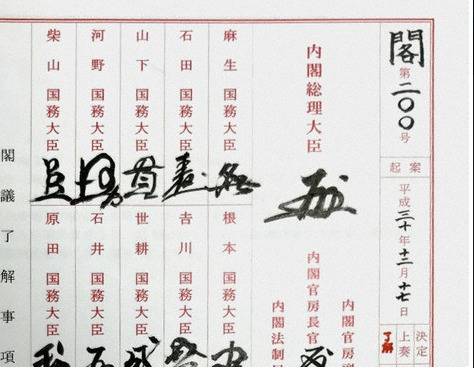 閣
第二〇〇号
起案
平成三十年十二月十七日
決定
上奏
了解
内閣総理大臣
内閣官房副
内閣官房長官
内閣法制局
麻生国務大臣
石田国務大臣
山下国務大臣
河野国務大臣
柴山国務大臣
根本国務大臣
吉川国務大臣
世耕国務大臣
石井国務大臣
原田国務大臣
閣議了解事項